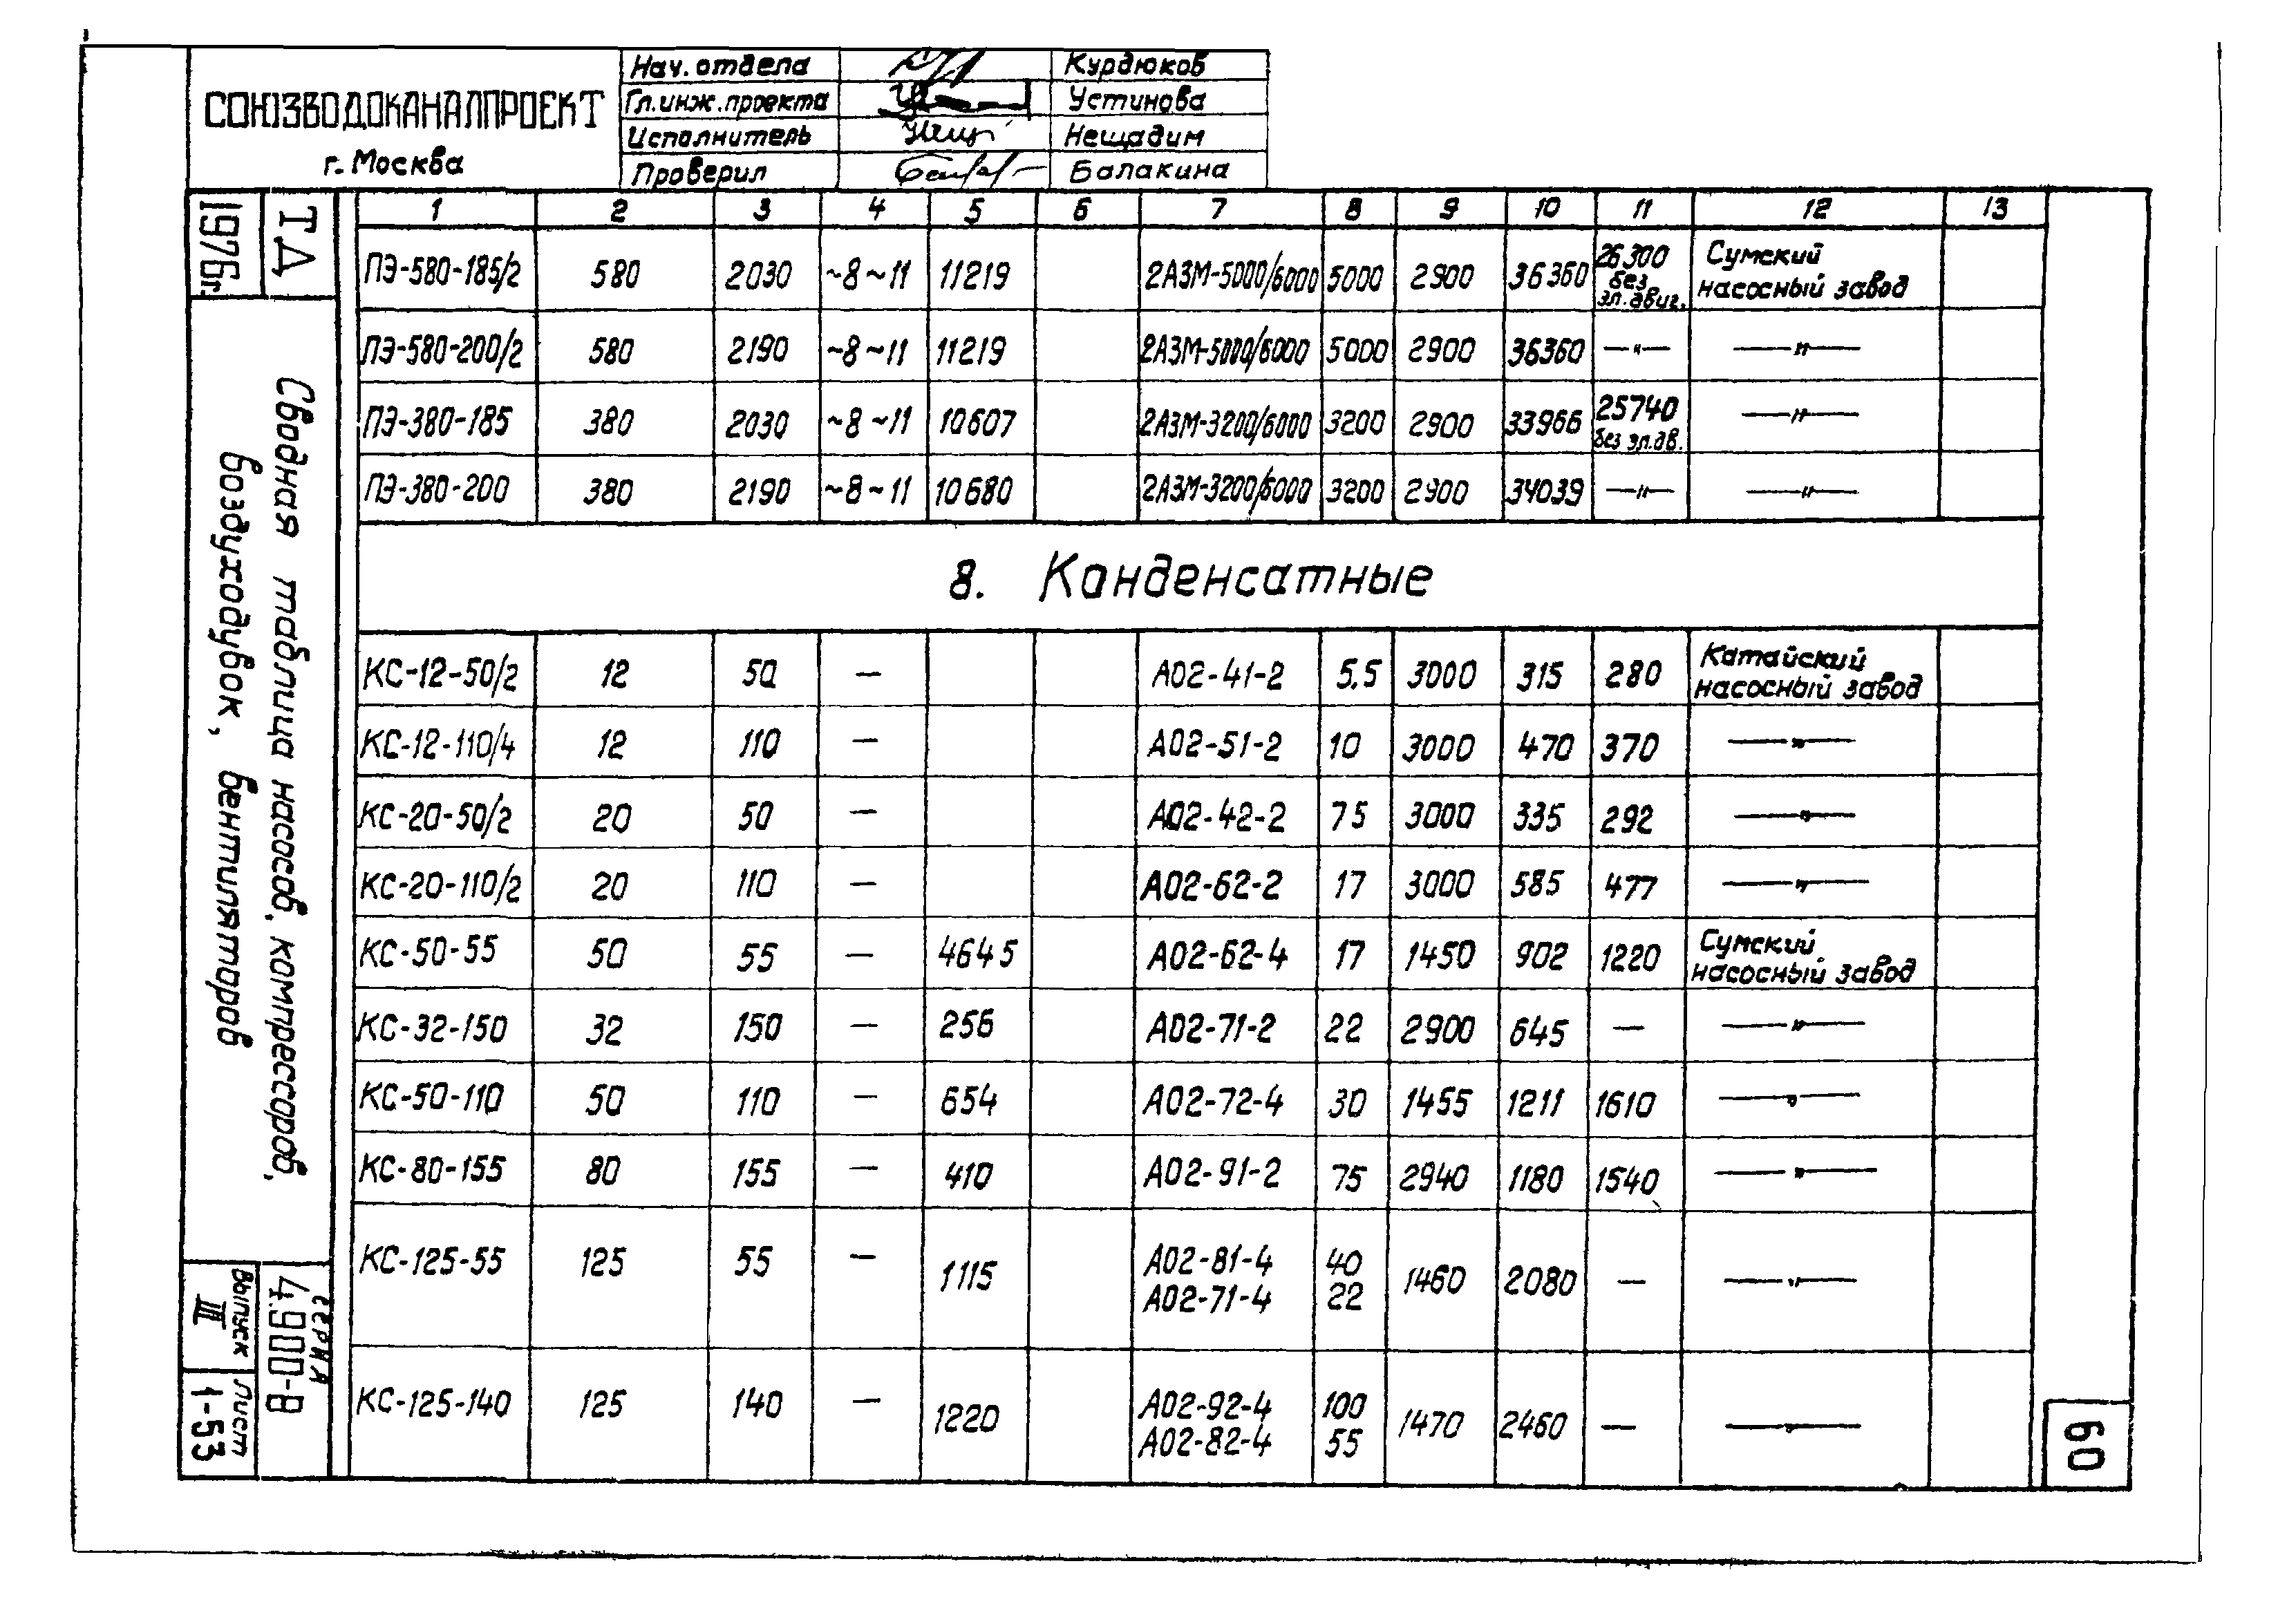 СОЮЗВОДОКАНАЛПРОЕКТ
г. Москва
Нач. отдела Курдюков
Гл. инж. проекта Устинова
Исполнитель Нещадим
Проверил Балакина
ТД
1976г.
Сводная таблица насосов, компрессоров,
воздуходувок, вентиляторов
серия
4.900-8
Выпуск
III
Лист
1-53
1 2 3 4 5 6 7 8 9 10 11 12 13
ПЭ-580-185/2 580 2030 ~8 ~11 11219 2АЗМ-5000/6000 5000 2900 36360 26300 без эл.двиг. Сумский насосный завод
ПЭ-580-200/2 580 2190 ~8 ~11 11219 2АЗМ-5000/6000 5000 2900 36360 —"— —"—
ПЭ-380-185 380 2030 ~8 ~11 10607 2АЗМ-3200/6000 3200 2900 33966 25740 без эл.дв. —"—
ПЭ-380-200 380 2190 ~8 ~11 10680 2АЗМ-3200/6000 3200 2900 34039 —"— —"—
8. Конденсатные
КС-12-50/2 12 50 — А02-41-2 5,5 3000 315 280 Катайский насосный завод
КС-12-110/4 12 110 — А02-51-2 10 3000 470 370 —"—
КС-20-50/2 20 50 — А02-42-2 75 3000 335 292 —"—
КС-20-110/2 20 110 — А02-62-2 17 3000 585 477 —"—
КС-50-55 50 55 — 4645 А02-62-4 17 1450 902 1220 Сумский насосный завод
КС-32-150 32 150 — 256 А02-71-2 22 2900 645 — —"—
КС-50-110 50 110 — 654 А02-72-4 30 1455 1211 1610 —"—
КС-80-155 80 155 — 410 А02-91-2 75 2940 1180 1540 —"—
КС-125-55 125 55 — 1115 А02-81-4 40 1460 2080 — —"—
А02-71-4 22
КС-125-140 125 140 — 1220 А02-92-4 100 1470 2460 — —"—
А02-82-4 55
60